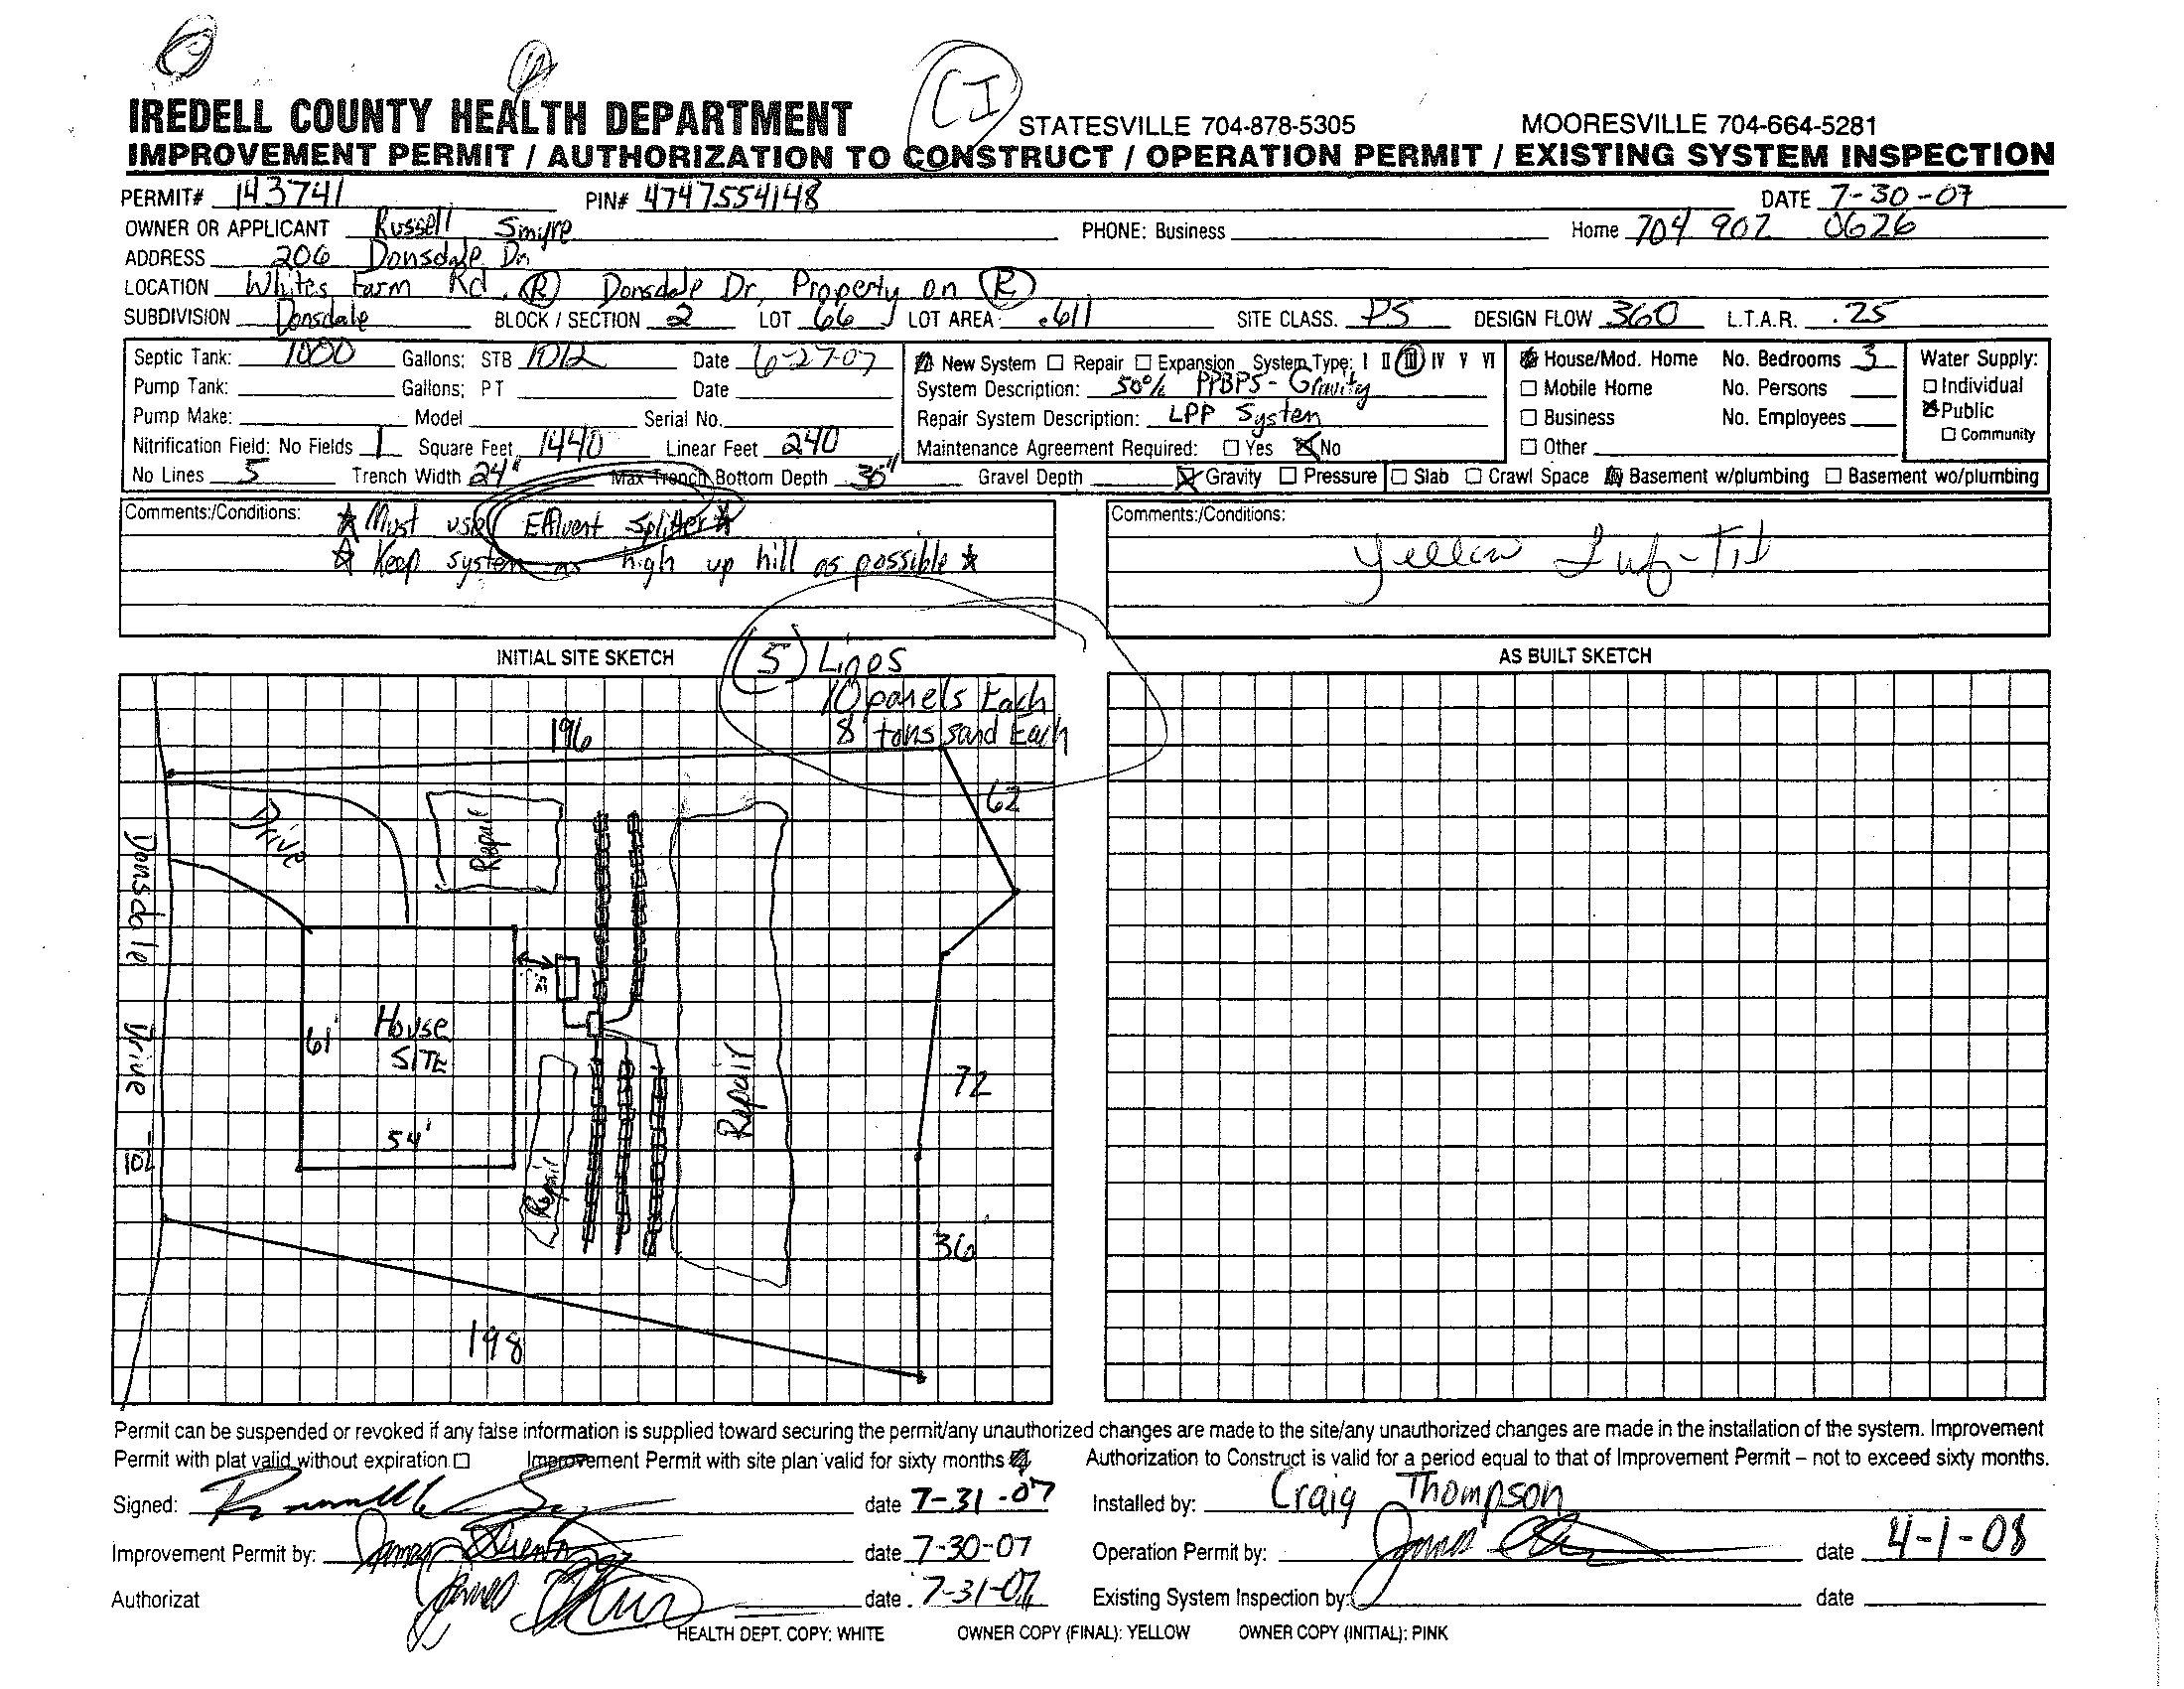 CI
IREDELL COUNTY HEALTH DEPARTMENT STATESVILLE 704-878-5305 MOORESVILLE 704-664-5281
IMPROVEMENT PERMIT / AUTHORIZATION TO CONSTRUCT / OPERATION PERMIT / EXISTING SYSTEM INSPECTION
PERMIT# 143741 PIN# 4747554148 DATE 7-30-07
OWNER OR APPLICANT Russell Smyre PHONE: Business Home 704 902 0626
ADDRESS 206 Donsdale Dr.
LOCATION Whites Farm Rd, (R) Donsdale Dr, Property on (R)
SUBDIVISION Donsdale BLOCK / SECTION 2 LOT 66 LOT AREA .611 SITE CLASS. PS DESIGN FLOW 360 L.T.A.R. .25
Septic Tank: 1000 Gallons; STB 1012 Date 6-27-07 New System Repair Expansion System Type: I II III IV V VI House/Mod. Home No. Bedrooms 3 Water Supply:
Pump Tank: Gallons; PT Date System Description: 50% PPBPS - Gravity Mobile Home No. Persons Individual
Pump Make: Model Serial No. Repair System Description: LPP System Business No. Employees Public
Nitrification Field: No Fields 1 Square Feet 1440 Linear Feet 240 Maintenance Agreement Required: Yes No Other Community
No Lines 5 Trench Width 24" Max Trench Bottom Depth 36" Gravel Depth Gravity Pressure Slab Crawl Space Basement w/plumbing Basement wo/plumbing
Comments:/Conditions: Must use Effluent Splitter Comments:/Conditions:
Keep system as high up hill as possible Yellow
INITIAL SITE SKETCH (5) Lines AS BUILT SKETCH
10 panels Each
8 tons sand Each
196
62
Drive
Repair
Donsdale Drive
61'
House
SITE
54'
Repair
Repair
72
102
36
198
Permit can be suspended or revoked if any false information is supplied toward securing the permit/any unauthorized changes are made to the site/any unauthorized changes are made in the installation of the system. Improvement
Permit with plat valid without expiration Improvement Permit with site plan valid for sixty months Authorization to Construct is valid for a period equal to that of Improvement Permit – not to exceed sixty months.
Signed: date 7-31-07 Installed by: Craig Thompson
Improvement Permit by: James date 7-30-07 Operation Permit by: James date 4-1-08
Authorizat James date 7-31-07 Existing System Inspection by: date
HEALTH DEPT. COPY: WHITE OWNER COPY (FINAL): YELLOW OWNER COPY (INITIAL): PINK